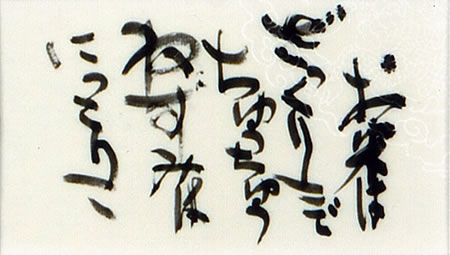 お米は
ざっくりこで
ちゅうちゅう
ねずみは
にっこりこ